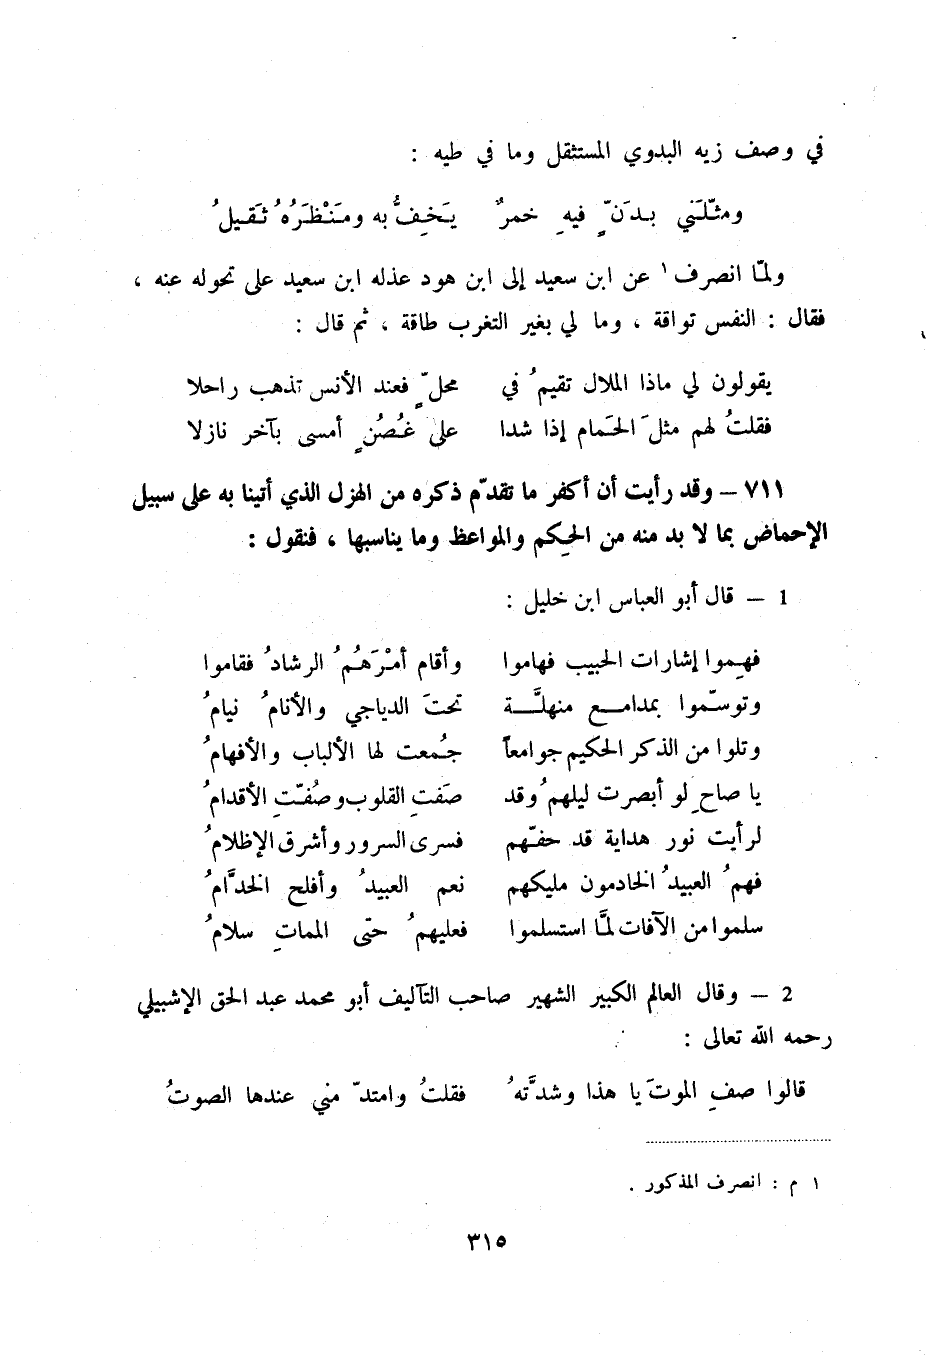 في وصف زيه البدوي المستثقل وما في طيه :
ومثّلَني بدَنّ ٍ فيهِ خمرٌ يَخِفُّ به ومَنْظَرُهُ ثَقيلُ
ولمّا انصرف ١ عن ابن سعيد إلى ابن هود عذله ابن سعيد على تحوله عنه ،
فقال : النفس تواقة ، وما لي بغير التغرب طاقة ، ثم قال :
يقولون لي ماذا الملال تقيمُ في محلّ ٍ فعند الأنس تذهب راحلا
فقلتُ لهم مثلَ الحَمام إذا شدا على غُصُنٍ أمسى بآخر نازلا
٧١١ – وقد رأيت أن أكفر ما تقدّم ذكره من الهزل الذي أتينا به على سبيل
الإحماض بما لا بد منه من الحِكم والمواعظ وما يناسبها ، فنقول :
1 – قال أبو العباس ابن خليل :
فهِموا إشارات الحبيب فهاموا وأقام أمْرَهُمُ الرشادُ فقاموا
وتوسّموا بمدامع منهلَّة تحتَ الدياجي والأنامُ نيامُ
وتلوا من الذكر الحكيم جوامعاً جُمعت لها الألباب والأفهامُ
يا صاحِ لو أبصرت ليلهمُ وقد صَفتِ القلوب وصُفّتِ الأقدامُ
لرأيت نور هداية قد حفّهم فسرى السرور وأشرق الإظلامُ
فهمُ العبيدُ الخادمون مليكهم نعم العبيدُ وأفلح الخدَّامُ
سلموا من الآفات لمَّا استسلموا فعليهمُ حتّى المماتِ سلامُ
2 – وقال العالم الكبير الشهير صاحب التآليف أبو محمد عبد الحق الإشبيلي
رحمه الله تعالى :
قالوا صفِ الموتَ يا هذا وشدَّتهُ فقلتُ وامتدّ مني عندها الصوتُ
١ م : انصرف المذكور .
٣١٥